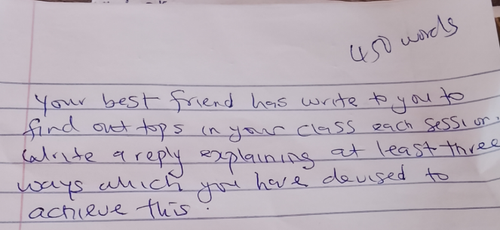 450 words
Your best friend has write to you to
find out tops in your class each session.
Write a reply explaining at least three
ways which you have devised to
achieve this.